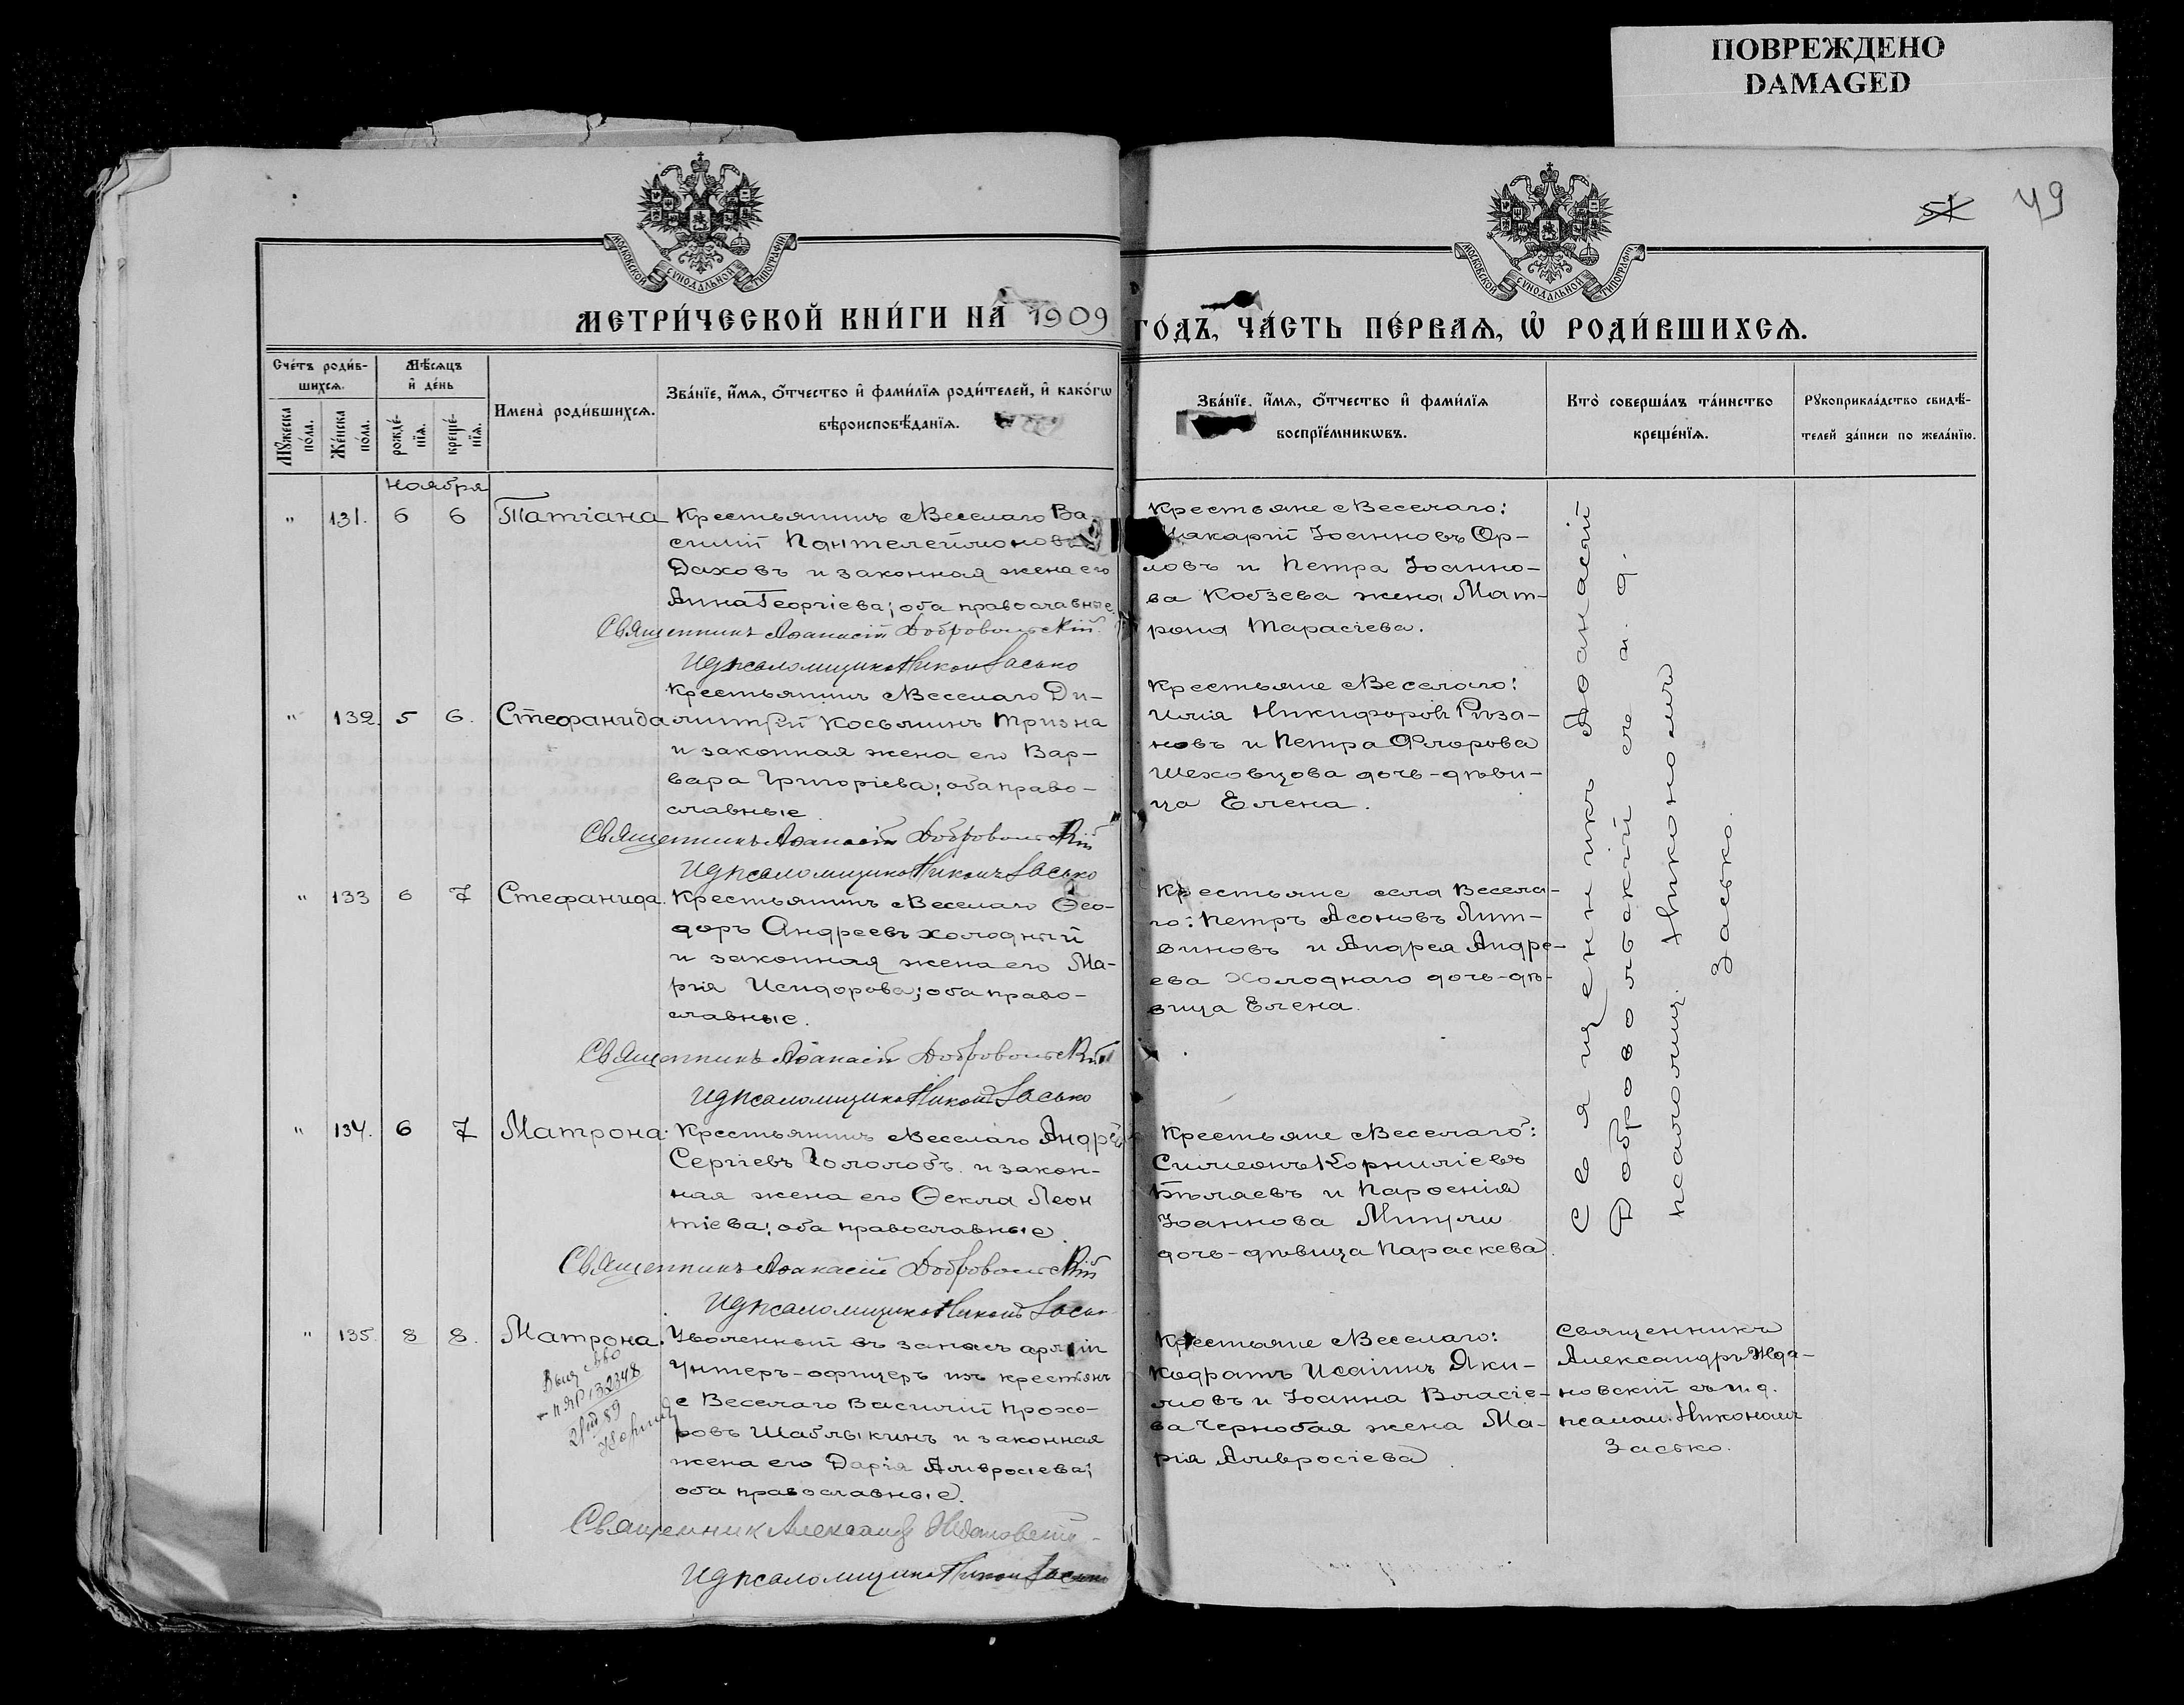 ПОВРЕЖДЕНО
DAMAGED
51
49
МОСКОВСКОЙ СѴНОДАЛЬНОЙ ТИПОГРАФІИ
МОСКОВСКОЙ СѴНОДАЛЬНОЙ ТИПОГРАФІИ
МЕТРИ́ЧЕСКОЙ КНИ́ГИ НА 1909
ГО́ДЪ, ЧА́СТЬ ПЕ́РВАѦ, Ѡ҆ РОДИ́ВШИХСѦ.
Сче́тъ роди́в-
шихсѧ.
Мѣ́сѧцъ
и҆ де́нь
Мꙋ́жеска по́ла.
Же́нска по́ла.
рожде́-
нїѧ.
креще́-
нїѧ.
Имена̀ роди́вшихсѧ.
Зва́нїе, и҆́мѧ, ѻ҆́тчество и҆ фами́лїѧ роди́телей, и҆ како́гѡ
вѣроисповѣ́данїѧ.
Зва́нїе, и҆́мѧ, ѻ҆́тчество и҆ фами́лїѧ
воспрїе́мникѡвъ.
Кто̀ соверша́лъ та́инство
креще́нїѧ.
Рꙋкоприкла́дство свидѣ́-
телей за́писи по жела́нїю.
ноября
" 131. 6 6 Татіана
Крестьянинъ с Веселаго Ва-
силій Пантелеймоновъ
Даховъ и законная жена его
Анна Георгіева; оба православные.
Священникъ Аѳанасій Добровольскій.
И д псаломщика Никон Засько
Крестьяне с Веселаго:
Макарій Іоанновъ Ор-
ловъ и Петра Іоанно-
ва Кобзева жена Мат-
рона Тарасіева.
" 132. 5 6. Стефанида
Крестьянинъ с Веселаго Ди-
митрій Косьминъ Тризна
и законная жена его Вар-
вара Григоріева; оба право-
славные.
Священникъ Аѳанасій Добровольскій
И д псаломщика Никонъ Засько
Крестьяне с Веселаго:
Илія Никифоровъ Роза-
новъ и Петра Флорова
Шеховцова дочь-дѣви-
ца Елена.
" 133 6 7 Стефанида.
Крестьянинъ с Веселаго Ѳео-
доръ Андреевъ Холодный
и законная жена его Ма-
рія Исидорова; оба право-
славные.
Священникъ Аѳанасій Добровольскій
И д псаломщика Никонъ Засько
Крестьяне села Весела-
го: Петръ Асоновъ Лит-
виновъ и Андрея Андре-
ева Холоднаго дочь-дѣ-
вица Елена.
" 134. 6 7 Матрона.
Крестьянинъ с Веселаго Андрей
Сергіевъ Гололобъ и закон-
ная жена его Ѳекла Леон
тіева; оба православные.
Священникъ Аѳанасій Добровольскій
И д псаломщика Никонъ Засько
Крестьяне с Веселаго:
Симеонъ Корниліевъ
Бѣляевъ и Парѳенія
Іоаннова
дочь-дѣвица Параскева.
Священникъ Аѳанасій
Добровольскій съ и. д.
псаломщ. Никономъ
Засько.
" 135. 8 8. Матрона.
132348
89
Уволенный въ запасъ арміи
унтеръ-офицеръ изъ крестьянъ
с Веселаго Василій Прохо-
ровъ Шаблыкинъ и законная
жена его Дарія Амвросіева;
оба православные.
Священник Александр Ждановскій
И д псаломщика Никон Засько
Крестьяне с Веселаго:
Кодратъ Исаіинъ Яки-
мовъ и Іоанна Власіе-
ва Чернобая жена Ма-
рія Амвросіева.
Священникъ
Александръ Жда-
новскій съ и. д.
псалом. Никономъ
Засько.